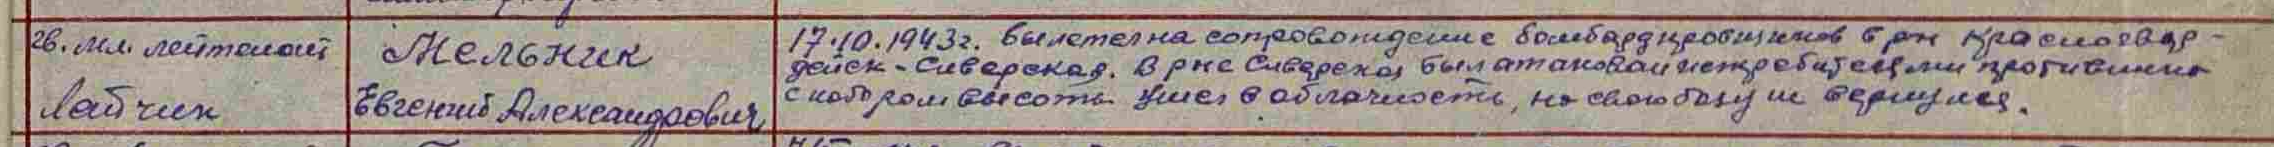 гв. мл. лейтенант
Летчик
Мельник
Евгений Александрович
17.10.1943г. вылетел на сопровождение бомбардировщиков в р-н Красногвар-
дейск - Сиверская. В р-не Сиверской был атакован истребителями противника
с набором высоты ушел в облачность, на свою базу не вернулся.